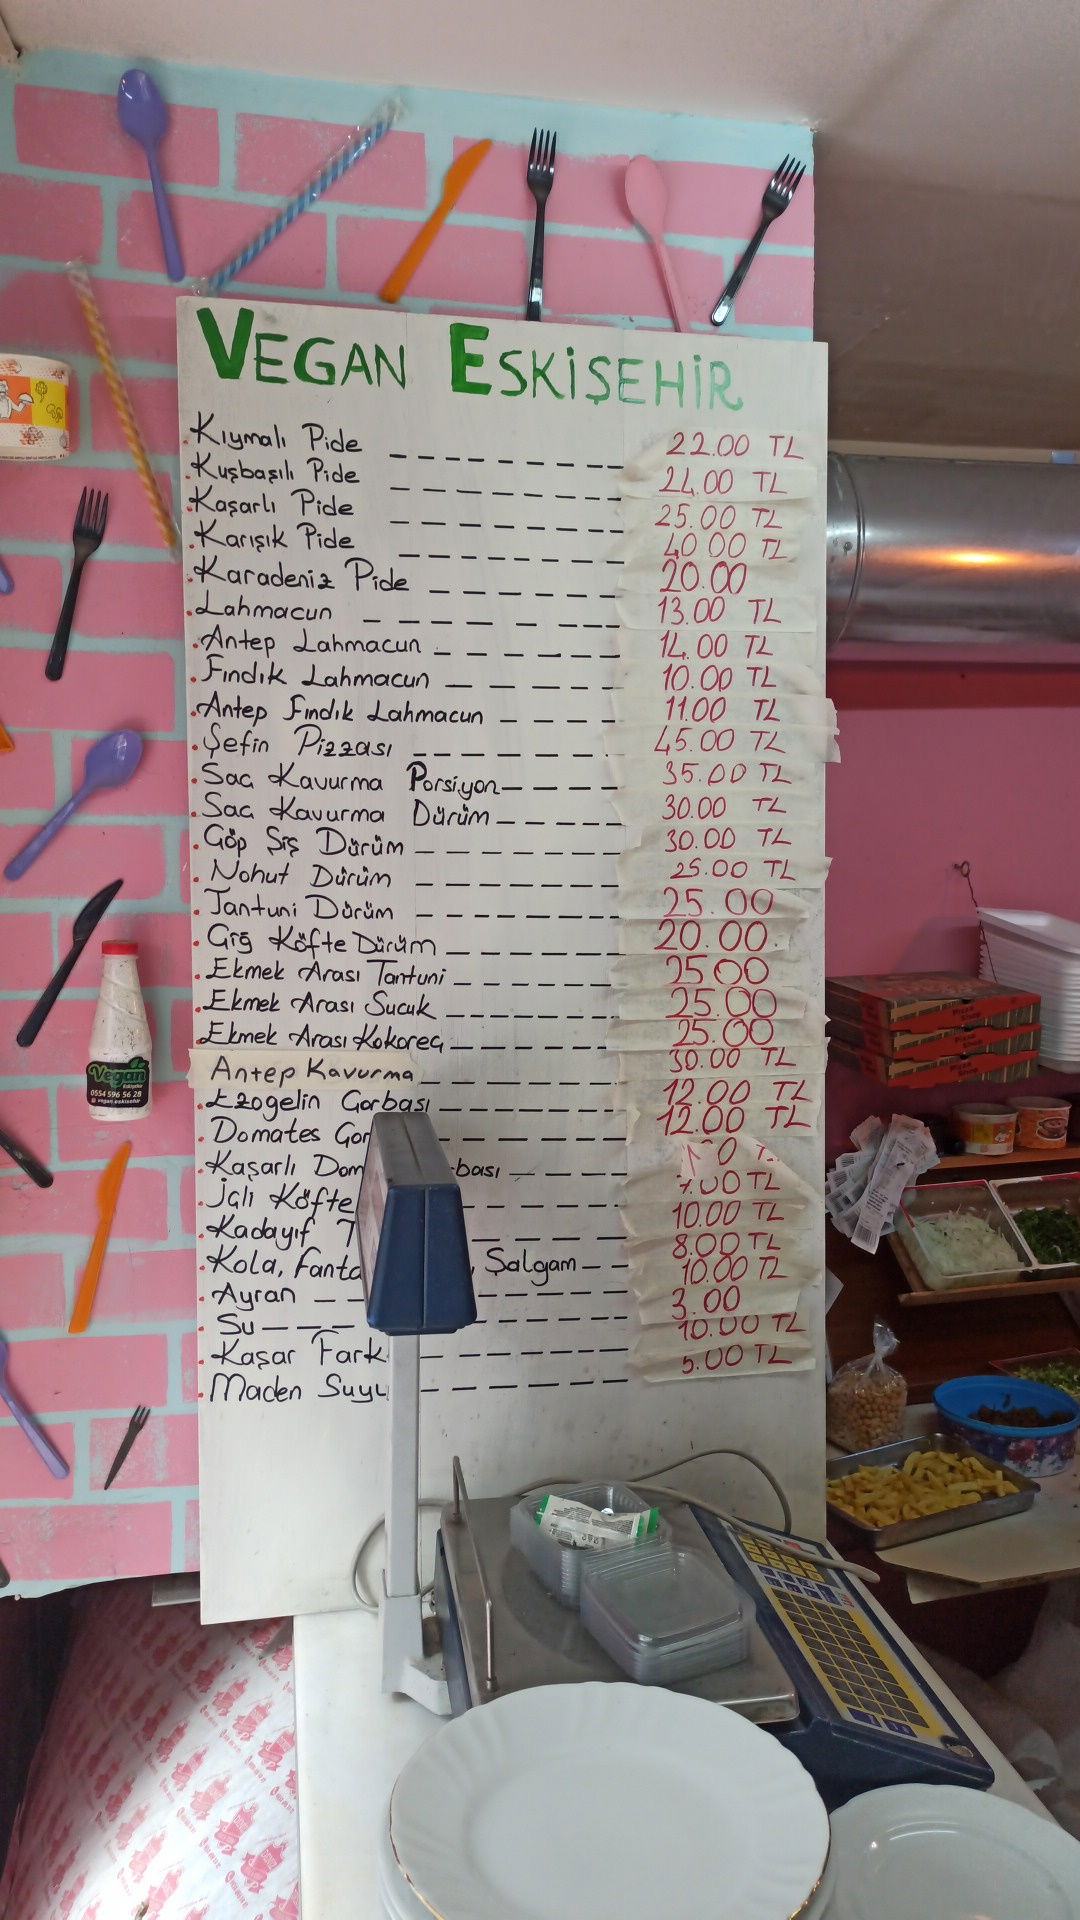 VEGAN ESKİŞEHİR
Kıymalı Pide 22.00 TL
Kuşbaşılı Pide 24.00 TL
Kaşarlı Pide 25.00 TL
Karışık Pide 40.00 TL
Karadeniz Pide 20.00
Lahmacun 13.00 TL
Antep Lahmacun 14.00 TL
Fındık Lahmacun 10.00 TL
Antep Fındık Lahmacun 11.00 TL
Şefin Pizzası 45.00 TL
Sac Kavurma Porsiyon 35.00 TL
Sac Kavurma Dürüm 30.00 TL
Çöp Şiş Dürüm 30.00 TL
Nohut Dürüm 25.00 TL
Tantuni Dürüm 25.00
Çiğ Köfte Dürüm 20.00
Ekmek Arası Tantuni 25.00
Ekmek Arası Sucuk 25.00
Ekmek Arası Kokoreç 25.00
Antep Kavurma 30.00 TL
Ezogelin Çorbası 12.00 TL
Domates Çor 12.00 TL
Kaşarlı Dom bası
İçli Köfte 7.00 TL
Kadayıf T 10.00 TL
Kola, Fanta , Şalgam 8.00 TL
Ayran 10.00 TL
Su 3.00
Kaşar Fark 10.00 TL
Maden Suyu 5.00 TL
Vegan
Eskişehir
0554 596 56 28
vegan.eskisehir
Pizza
Shop
Pizza
Shop
Pizza
Shop